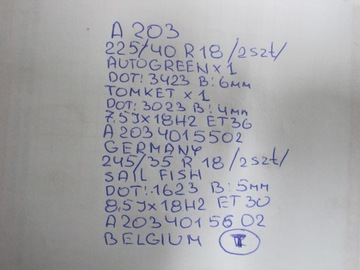 A 203
225/40 R 18 /2szt/
AUTOGREEN x 1
DOT: 3423 B: 6mm
TOMKET x 1
DOT: 3023 B: 4mm
7.5Jx18H2 ET36
A 203 401 55 02
GERMANY
245/35 R 18 /2szt/
SAIL FISH
DOT: 1623 B: 5mm
8.5Jx18H2 ET 30
A 203 401 56 02
BELGIUM T